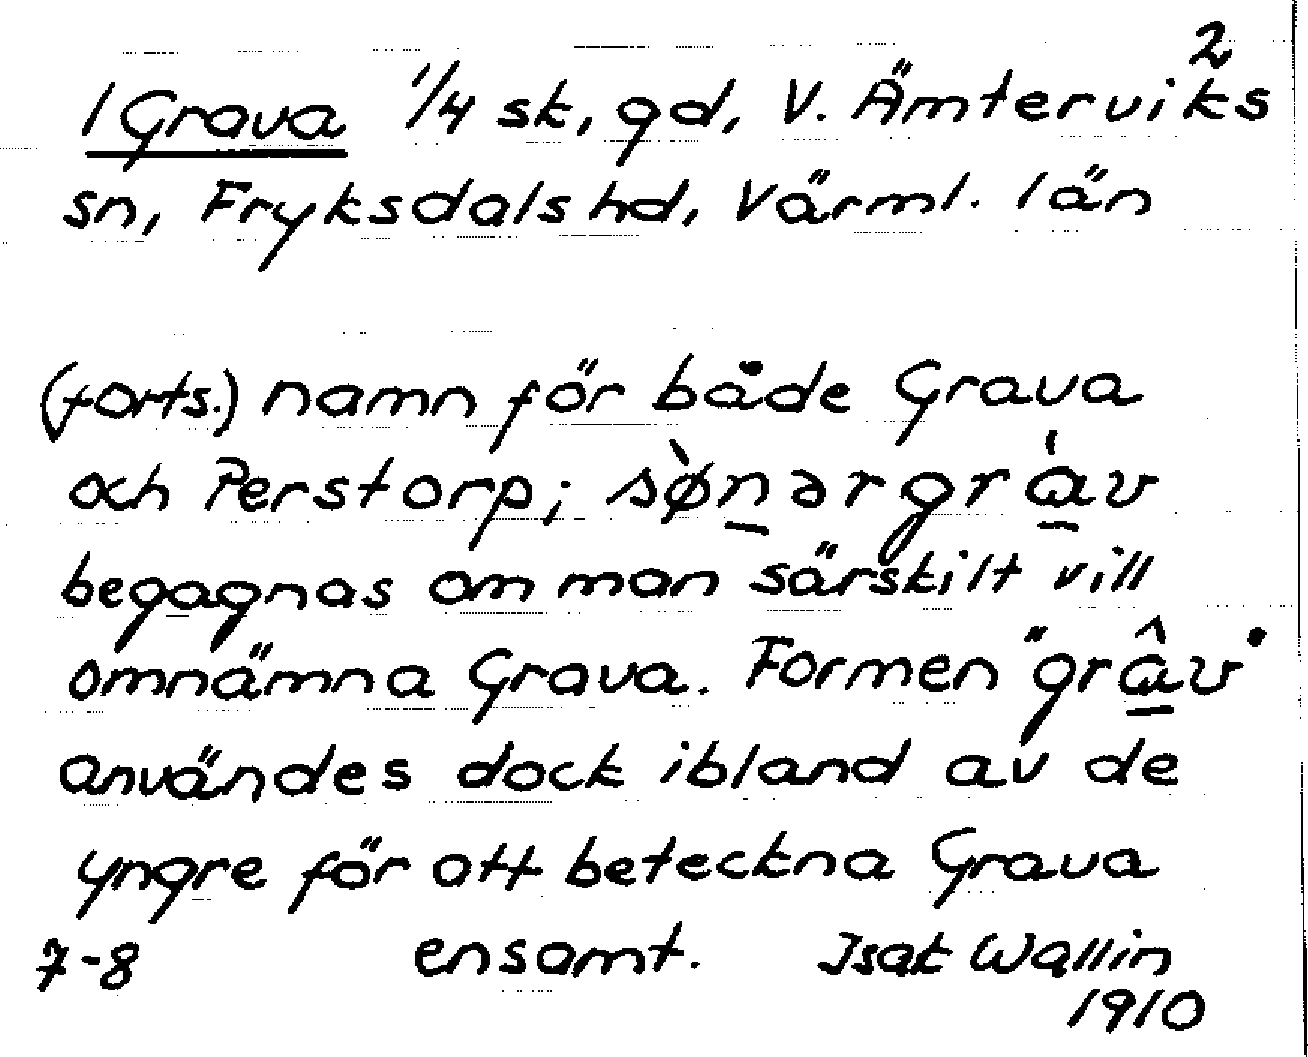 2
1 Grava 1/4 sk, gd, V. Ämterviks
sn, Fryksdals hd, Värml. län
(forts.) namn för både Grava
och Perstorp; sø̀n̲ərgrá̲v
begagnas om man särskilt vill
omnämna Grava. Formen "grâ̲v"
användes dock ibland av de
yngre för att beteckna Grava
7-8 ensamt. Isak Wallin
1910